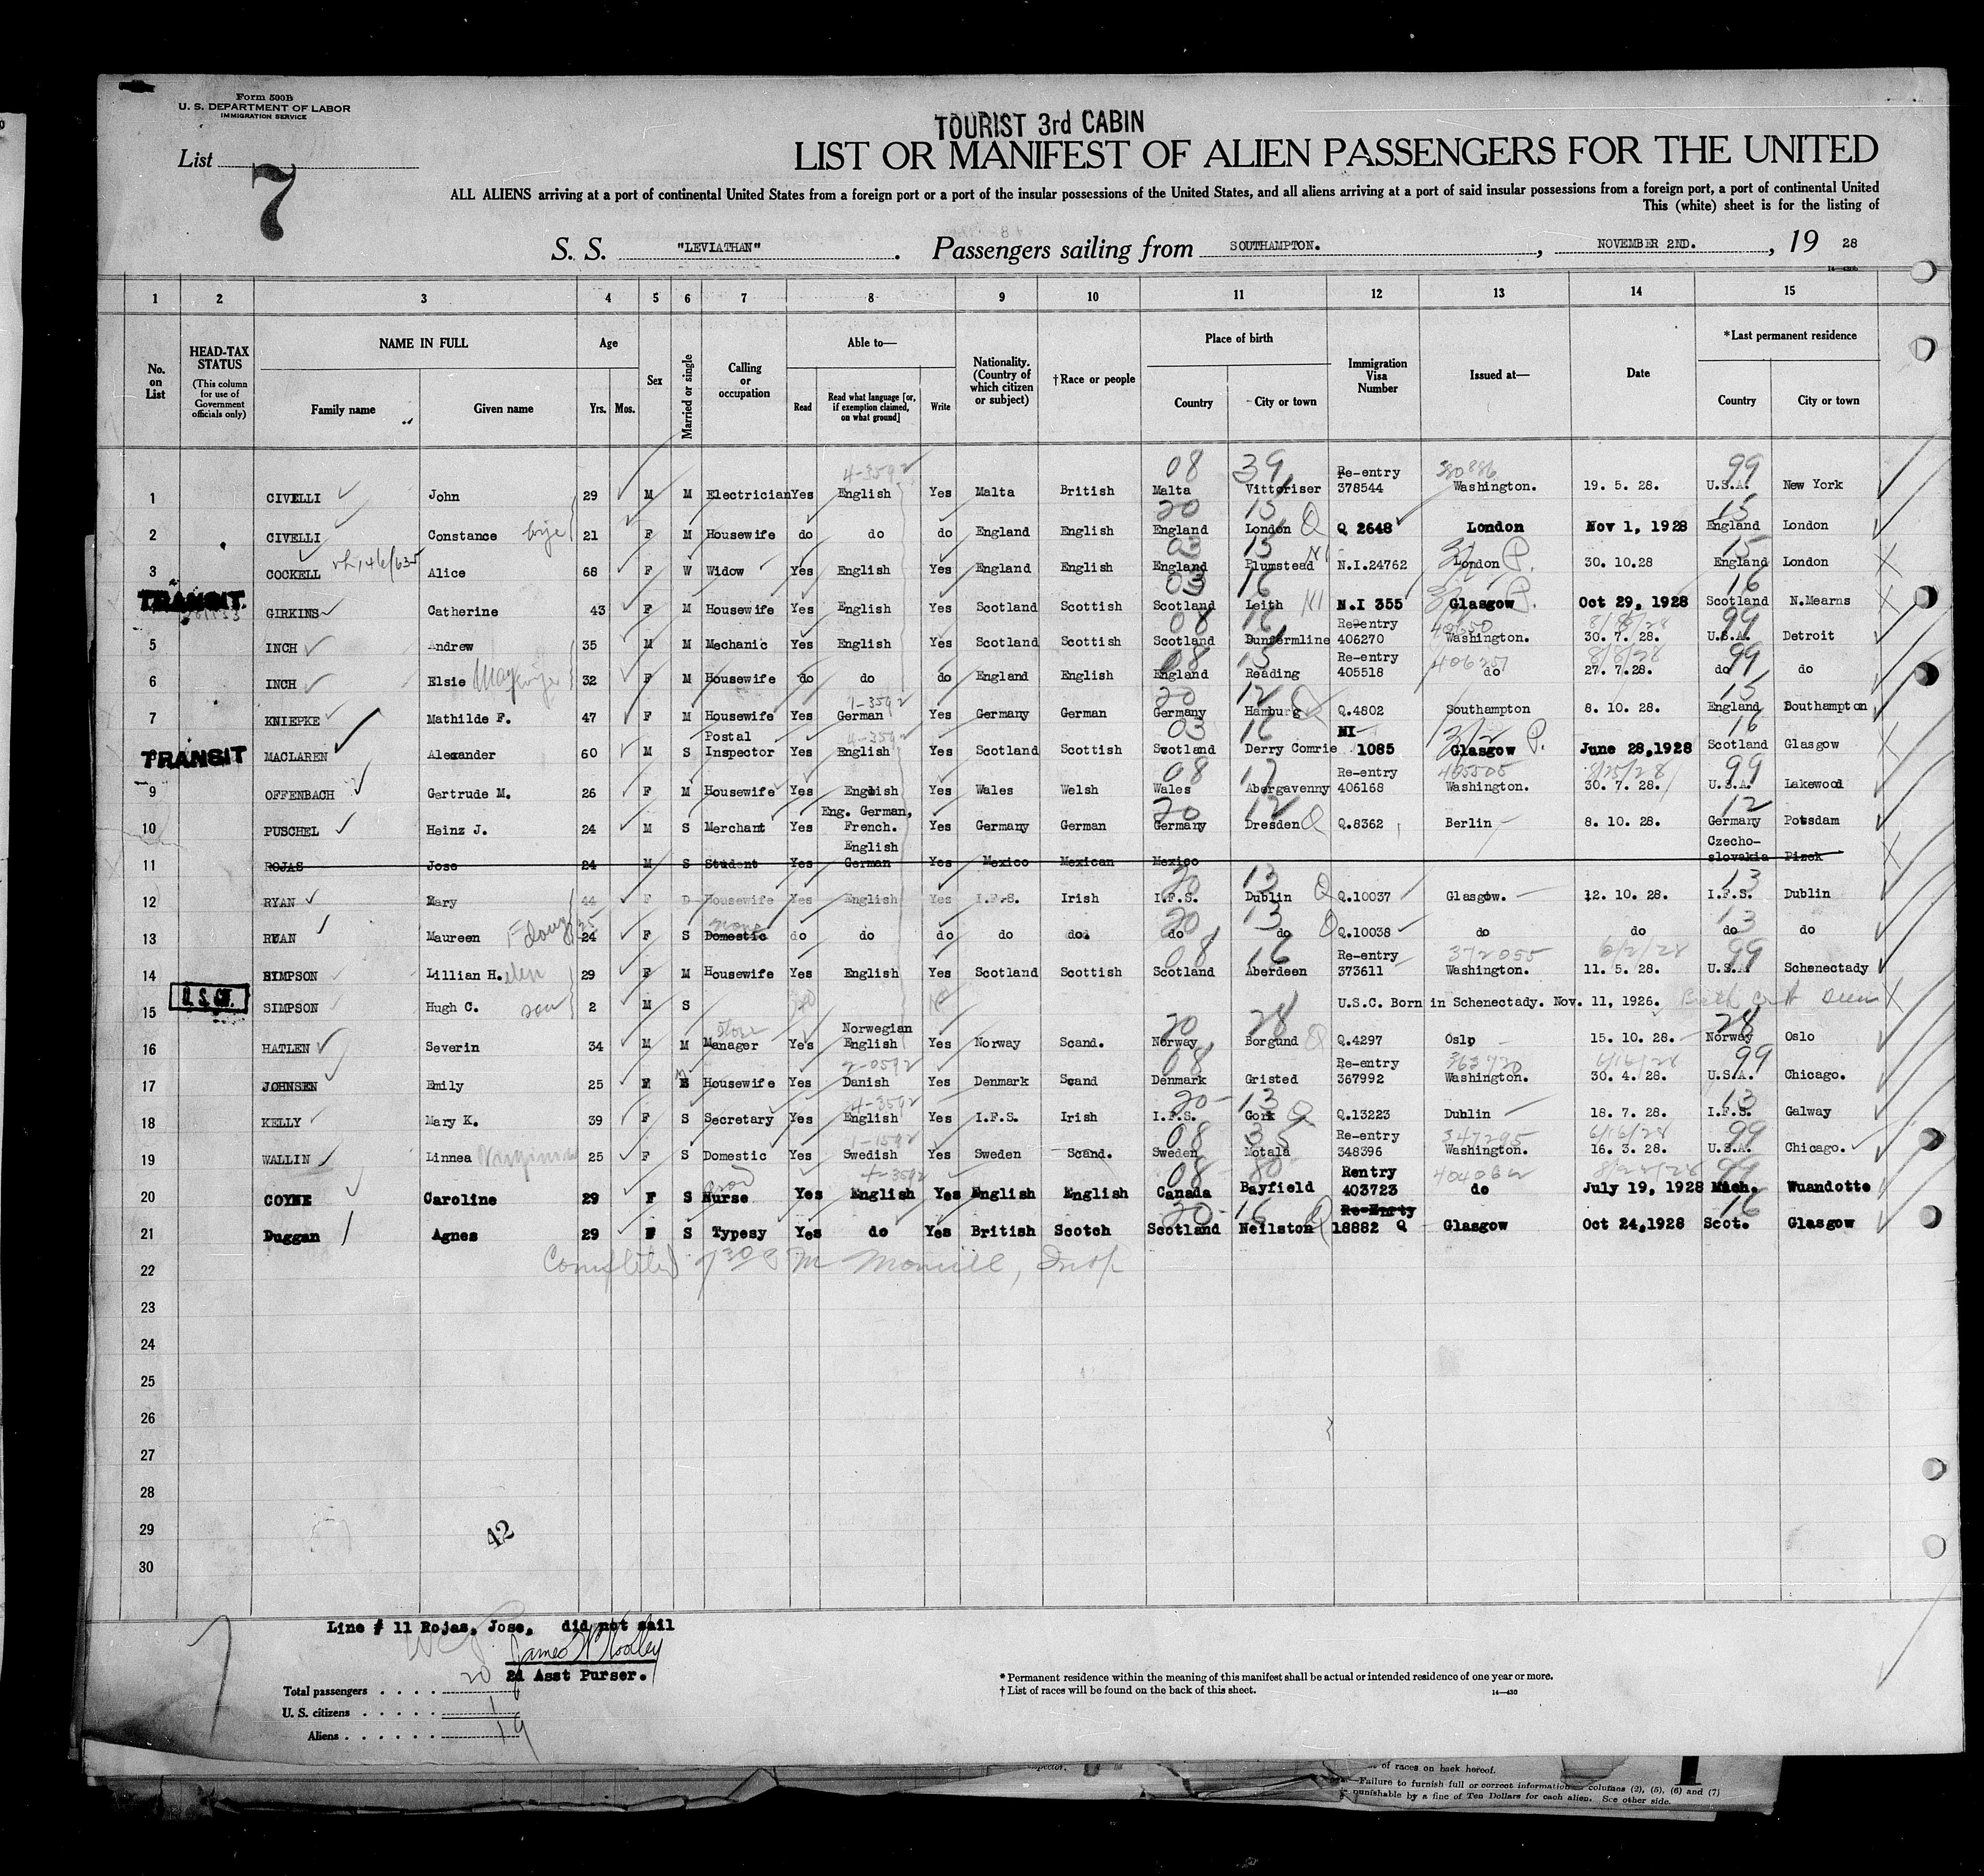 Form 500B
U. S. DEPARTMENT OF LABOR
IMMIGRATION SERVICE
TOURIST 3rd CABIN
List 7
LIST OR MANIFEST OF ALIEN PASSENGERS FOR THE UNITED
ALL ALIENS arriving at a port of continental United States from a foreign port or a port of the insular possessions of the United States, and all aliens arriving at a port of said insular possessions from a foreign port, a port of continental United
This (white) sheet is for the listing of
S. S. "LEVIATHAN". Passengers sailing from SOUTHAMPTON., NOVEMBER 2ND., 19 28
1 2 3 4 5 6 7 8 9 10 11 12 13 14 15
No. on List
HEAD-TAX STATUS
(This column for use of Government officials only)
NAME IN FULL
Family name Given name
Age
Yrs. Mos.
Sex
Married or single
Calling or occupation
Able to—
Read Read what language [or, if exemption claimed, on what ground] Write
Nationality. (Country of which citizen or subject)
†Race or people
Place of birth
Country City or town
Immigration Visa Number
Issued at—
Date
*Last permanent residence
Country City or town
4-3592 08 39 Re-entry 380886 99
1 CIVELLI John 29 M M Electrician Yes English Yes Malta British Malta Vittoriser 378544 Washington. 19. 5. 28. U.S.A. New York
20 15 15
2 CIVELLI Constance wife 21 F M Housewife do do do England English England London Q Q 2648 London Nov 1, 1928 England London
03 15 NI 15
3 COCKELL Alice 68 F W Widow Yes English Yes England English England Plumstead N.I.24762 London P. 30. 10.28 England London
03 16 16
TRANSIT. GIRKINS Catherine 43 F M Housewife Yes English Yes Scotland Scottish Scotland Leith NI N.I 355 Glasgow P. Oct 29, 1928 Scotland N.Mearns
08 16 Re-entry 8/18/28 99
5 INCH Andrew 35 M M Mechanic Yes English Yes Scotland Scottish Scotland Dunfermline 406270 Washington. 30. 7. 28. U.S.A. Detroit
08 15 Re-entry 8/8/28 99
6 INCH Elsie May wife 32 F M Housewife do do do England English England Reading 405518 do 27. 7.28. do do
20 12 15
7 KNIEPKE Mathilde F. 47 F M Housewife Yes German Yes Germany German Germany Hamburg Q Q.4802 Southampton 8. 10. 28. England Southampton
Postal 03 16 NI 16
TRANSIT MACLAREN Alexander 60 M S Inspector Yes English Yes Scotland Scottish Scotland Derry Comrie 1085 Glasgow P. June 28,1928 Scotland Glasgow
08 17 Re-entry 405505 8/25/28 99
9 OFFENBACH Gertrude M. 26 F M Housewife Yes English Yes Wales Welsh Wales Abergavenny 406168 Washington. 30. 7. 28. U.S.A. Lakewood
Eng. German, 20 12 12
10 PUSCHEL Heinz J. 24 M S Merchant Yes French. Yes Germany German Germany Dresden Q Q.8362 Berlin 8. 10. 28. Germany Potsdam
English Czecho-
11 ROJAS Jose 24 M S Student Yes German Yes Mexico Mexican Mexico slovakia Pizek
20 13 13
12 RYAN Mary 44 F D Housewife Yes English Yes I.F.S. Irish I.F.S. Dublin Q Q.10037 Glasgow. 12. 10. 28. I.F.S. Dublin
none 20 13 13
13 RUAN Maureen 24 F S Domestic do do do do do. do do Q Q.10038 do do do do
08 16 Re-entry 372055 6/2/28 99
14 SIMPSON Lillian H.elen 29 F M Housewife Yes English Yes Scotland Scottish Scotland Aberdeen 373611 Washington. 11. 5. 28. U.S.A. Schenectady
U. S. CIT.
15 SIMPSON Hugh C. son 2 M S U.S.C. Born in Schenectady. Nov. 11, 1926. Birth Cert Seen
Store Norwegian 20 28 28
16 HATLEN Severin 34 M M Manager Yes English Yes Norway Scand. Norway Borgund Q Q.4297 Oslo 15. 10. 28. Norway Oslo
2-0592 08 Re-entry 99
17 JOHNSEN Emily 25 F M Housewife Yes Danish Yes Denmark Scand Denmark Gristed 367992 Washington. 30. 4. 28. U.S.A. Chicago.
4-3592 20 13 13
18 KELLY Mary K. 39 F S Secretary Yes English Yes I.F.S. Irish I.F.S. Cork Q Q.13223 Dublin 18. 7. 28. I.F.S. Galway
1-1592 08 35 Re-entry 347295 6/16/28 99
19 WALLIN Linnea 25 F S Domestic Yes Swedish Yes Sweden Scand. Sweden Motala 348396 Washington. 16. 3. 28. U.S.A. Chicago.
4-3592 08 80 Rentry 404062 99
20 COYNE Caroline 29 F S Nurse Yes English Yes English English Canada Bayfield 403723 do July 19, 1928 Mich. Wuandotte
20 16 Re-Entry 16
21 Duggan Agnes 29 F S Typesy Yes do Yes British Scotch Scotland Neilston Q 18882 Q Glasgow Oct 24,1928 Scot. Glasgow
22 Completed
23
24
25
26
27
28
29
30
42
Line # 11 Rojas, Jose, did not sail
2d Asst Purser.
Total passengers . . . . 20
U. S. citizens . . . . . 1
Aliens . . . . . . 19
* Permanent residence within the meaning of this manifest shall be actual or intended residence of one year or more.
† List of races will be found on the back of this sheet.
14—430
of races on back hereof.
Failure to furnish full or correct information columns (2), (5), (6) and (7)
punishable by a fine of Ten Dollars for each alien. See other side.